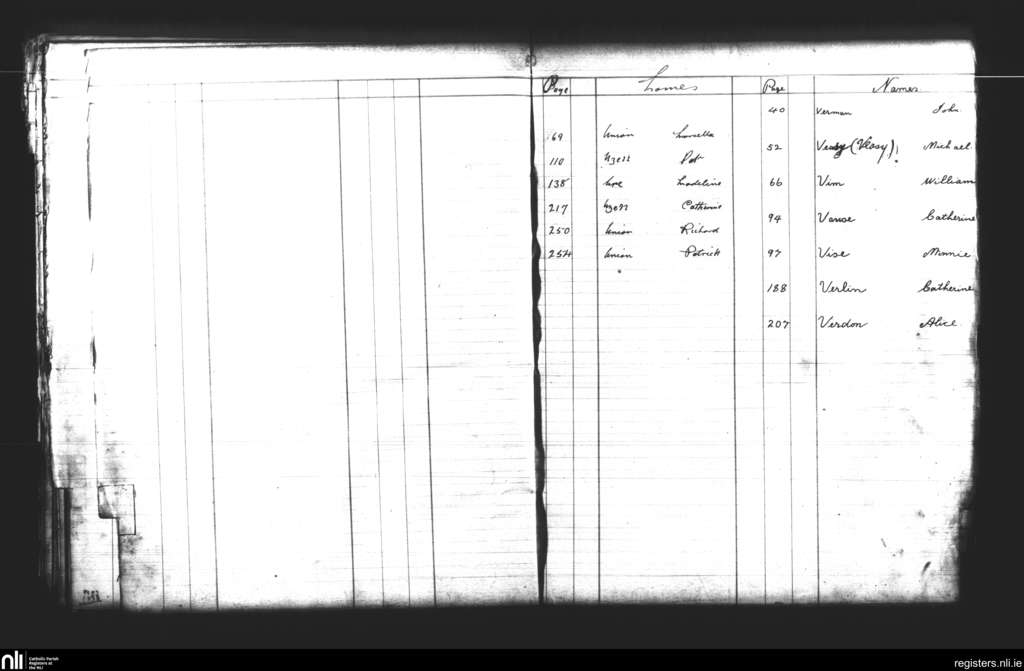 Page
Names
69 Union Louella
110 Uzell Pat
138 Ure Madeline
217 Uzell Catherine
250 Union Richard
254 Union Patrick
Page Names
40 Verman John
52 (Veasy) Michael
66 Vim William
94 Vanse Catherine
97 Vise Minnie
188 Verlin Catherine
207 Verdon Alice
nli Catholic Parish
Registers at
the NLI
registers.nli.ie